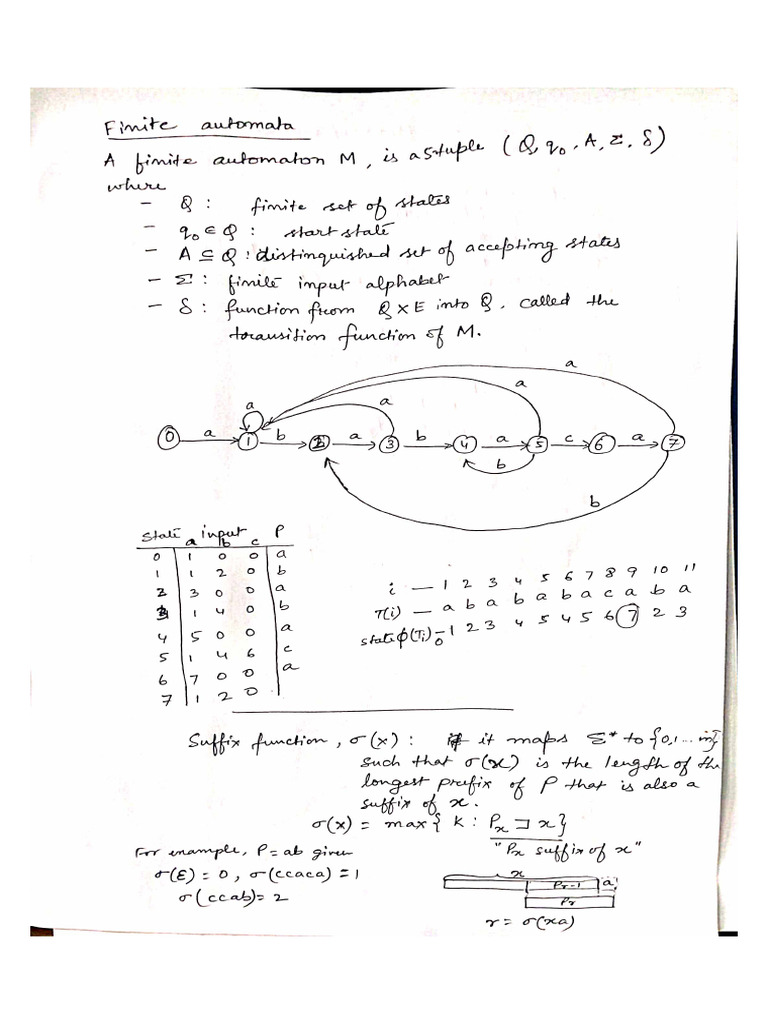 Finite automata
A finite automaton M, is a 5tuple (Q, q0, A, Σ, δ)
where
- Q : finite set of states
- q0 ∈ Q : start state
- A ⊆ Q : distinguished set of accepting states
- Σ : finite input alphabet
- δ : function from Q x E into Q, called the
transition function of M.
a
a
a
a
0 a 1 b 2 a 3 b 4 a 5 c 6 a 7
b
b
state input P
a b c
0 1 0 0 a
1 1 2 0 b
2 3 0 0 a
3 1 4 0 b
4 5 0 0 a
5 1 4 6 c
6 7 0 0 a
7 1 2 0
i — 1 2 3 4 5 6 7 8 9 10 11
T(i) — a b a b a b a c a b a
state φ(Ti) – 0 1 2 3 4 5 4 5 6 7 2 3
Suffix function, σ(x) : it maps Σ* to {0,1...m}
such that σ(x) is the length of the
longest prefix of P that is also a
suffix of x.
σ(x) = max{ K : Px ⊐ x}
"Px suffix of x"
For example, P=ab given
σ(E) = 0, σ(ccaca) = 1
σ(ccab) = 2
x
Pr-1 a
Pr
r = σ(xa)